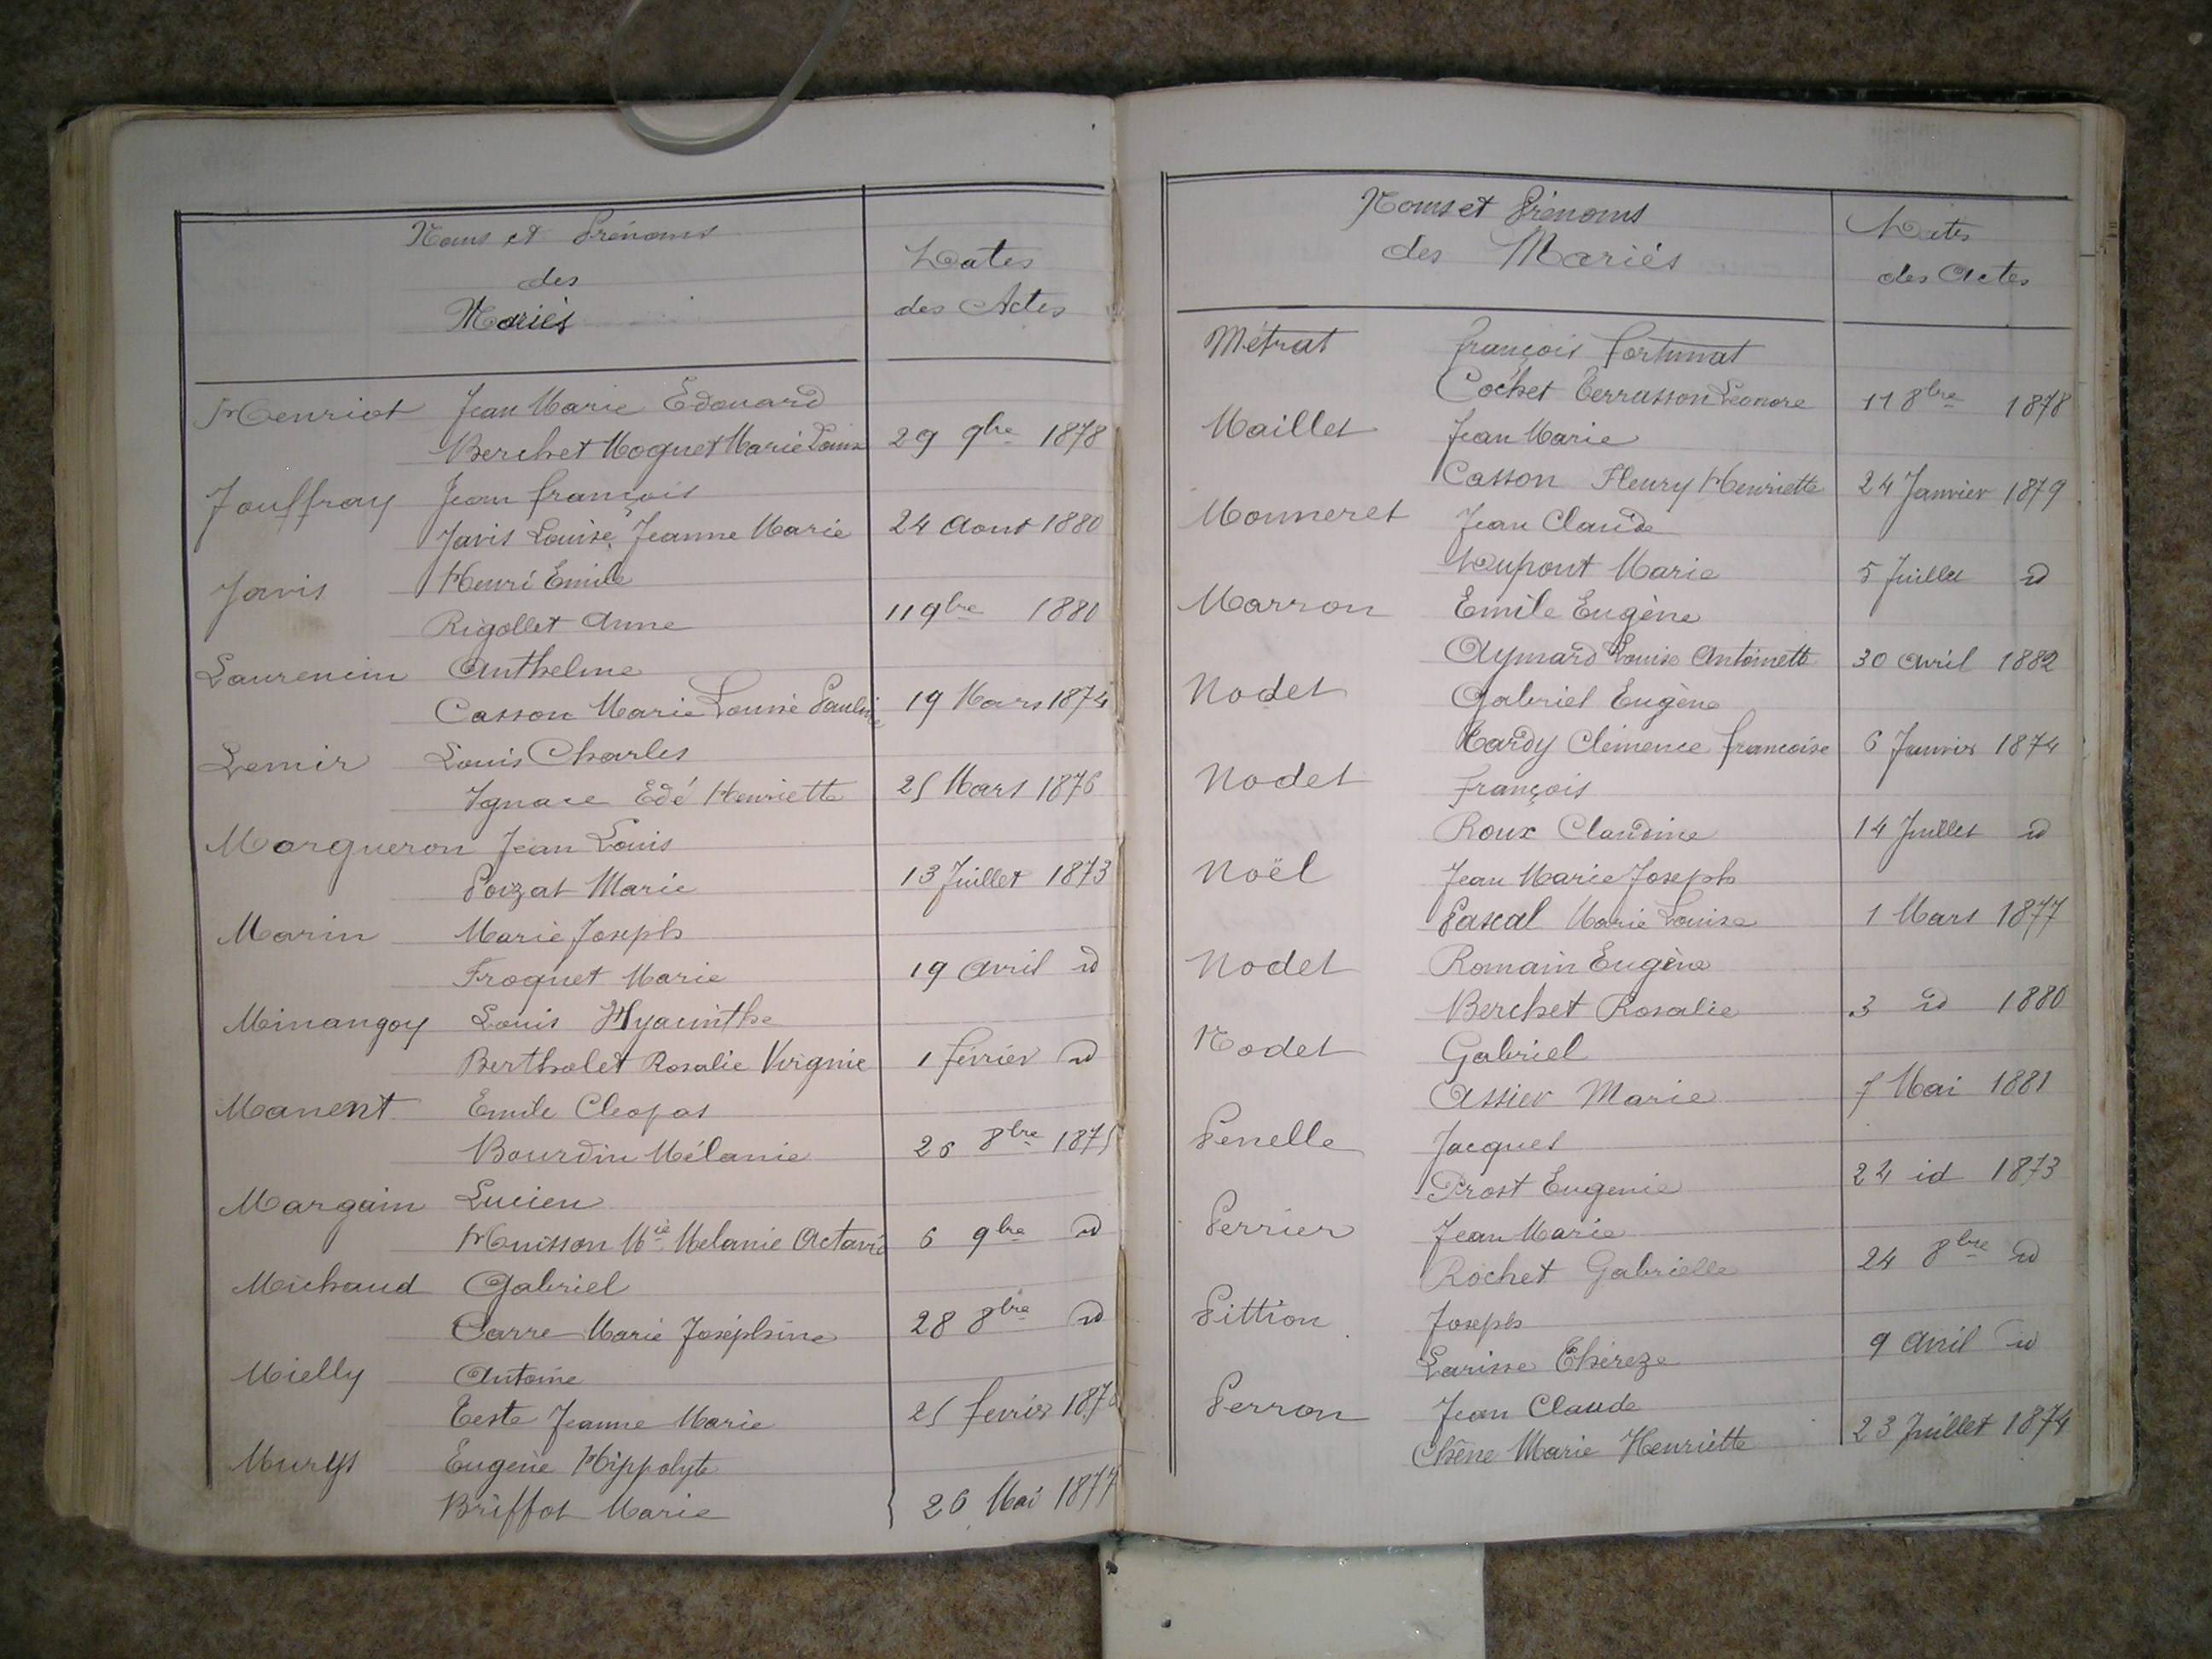 Noms et Prénoms
des
Mariés
Dates
des Actes
Henriot Jean Marie Edouard
Berchet Moquet Marie Louise 29 9bre 1878
Jouffray Jean françois
Javis Louise Jeanne Marie 24 Aout 1880
Javis Henri Emile
Rigollet Anne 11 9bre 1880
Laurencin Anthelme
Casson Marie Louise Pauline 19 Mars 1874
Lemir Louis Charles
Ignace Edé Henriette 25 Mars 1876
Morgueron Jean Louis
Poizat Marie 13 Juillet 1873
Marin Marie Joseph
Froquet Marie 19 Avril id
Minangoy Louis Hyacinthe
Bertholet Rosalie Virginie 1 février id
Manent Emile Cleopas
Bourdin Mélanie 26 8bre 1875
Margain Lucien
Huisson Mie Melanie Octavie 6 9bre id
Michaud Gabriel
Carre Marie Joséphine 28 8bre id
Mielly Antoine
Teste Jeanne Marie 25 fevrier
Murys Eugène Hippolyte
Briffot Marie 26 Mai 1877
Noms et Prénoms
des Mariés
Dates
des Actes
Métrat françois fortunat
Cochet Terrasson Leonore 11 8bre 1878
Maillet Jean Marie
Casson Fleury Henriette 24 Janvier 1879
Monneret Jean Claude
Dupont Marie 5 Juillet id
Marron Emile Eugène
Aymard Louise Antoinette 30 Avril 1882
Nodet Gabriel Eugène
Tardy Clémence françoise 6 Janvier 1874
Nodet françois
Roux Claudine 14 Juillet id
Noël Jean Marie Joseph
Pascal Marie Louise 1 Mars 1877
Nodet Romain Eugène
Berchet Rosalie 3 id 1880
Nodet Gabriel
Assier Marie 7 Mai 1881
Penelle Jacques
Prost Eugenie 24 id 1873
Perrier Jean Marie
Rochet Gabrielle 24 8bre id
Pittion Joseph
Larisse Thérèze 9 Avril id
Perron Jean Claude
Chêne Marie Henriette 23 Juillet 1874